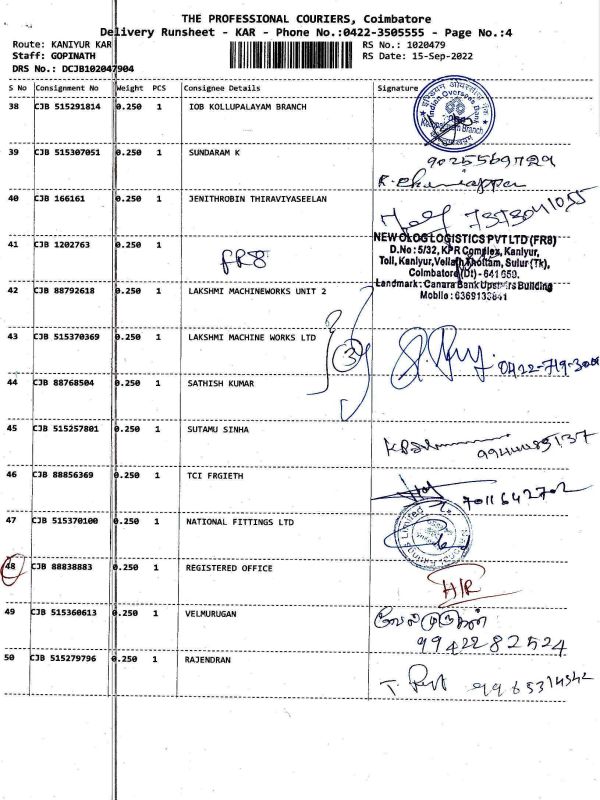 THE PROFESSIONAL COURIERS, Coimbatore
Delivery Runsheet - KAR - Phone No.:0422-3505555 - Page No.:4
Route: KANIYUR KAR
RS No.: 1020479
Staff: GOPINATH
RS Date: 15-Sep-2022
DRS No.: DCJB102047904
S No Consignment No Weight PCS Consignee Details Signature
38 CJB 515291814 0.250 1 IOB KOLLUPALAYAM BRANCH
Indian Overseas Bank
Branch
39 CJB 515307051 0.250 1 SUNDARAM K
9025569729
40 CJB 166161 0.250 1 JENITHROBIN THIRAVIYASEELAN
7373041055
41 CJB 1202763 0.250 1
FR8
NEW OLOG LOGISTICS PVT LTD (FR8)
D.No : 5/32, KPR Complex, Kaniyur,
Toll, Kaniyur, Vellath Thottam, Sulur (Tk),
Coimbatore (Dt) - 641 659.
Landmark : Canara Bank Upstairs Building
Mobile : 6369133841
42 CJB 88792618 0.250 1 LAKSHMI MACHINEWORKS UNIT 2
43 CJB 515370369 0.250 1 LAKSHMI MACHINE WORKS LTD
3
0422-719-3000
44 CJB 88768504 0.250 1 SATHISH KUMAR
45 CJB 515257801 0.250 1 SUTAMU SINHA
9944485137
46 CJB 88856369 0.250 1 TCI FRGIETH
7011642702
47 CJB 515370100 0.250 1 NATIONAL FITTINGS LTD
Limited
48 CJB 88838883 0.250 1 REGISTERED OFFICE
H/R
49 CJB 515360613 0.250 1 VELMURUGAN
வேல்முருகன்
9942282524
50 CJB 515279796 0.250 1 RAJENDRAN
9965314542